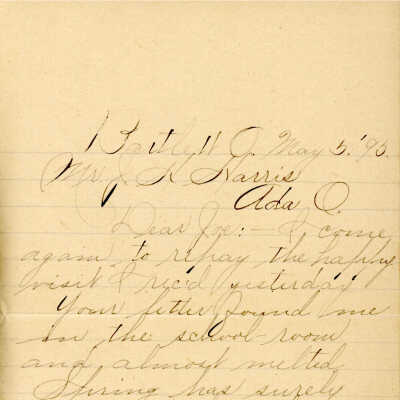 Bartlett O. May 5. '93.
Mr. J. S. Harris
Ada O.
Dear Joe:- I come
again to repay the happy
visit I rec'd yesterday
Your letter found me
in the school-room
and almost melted.
Spring has surely